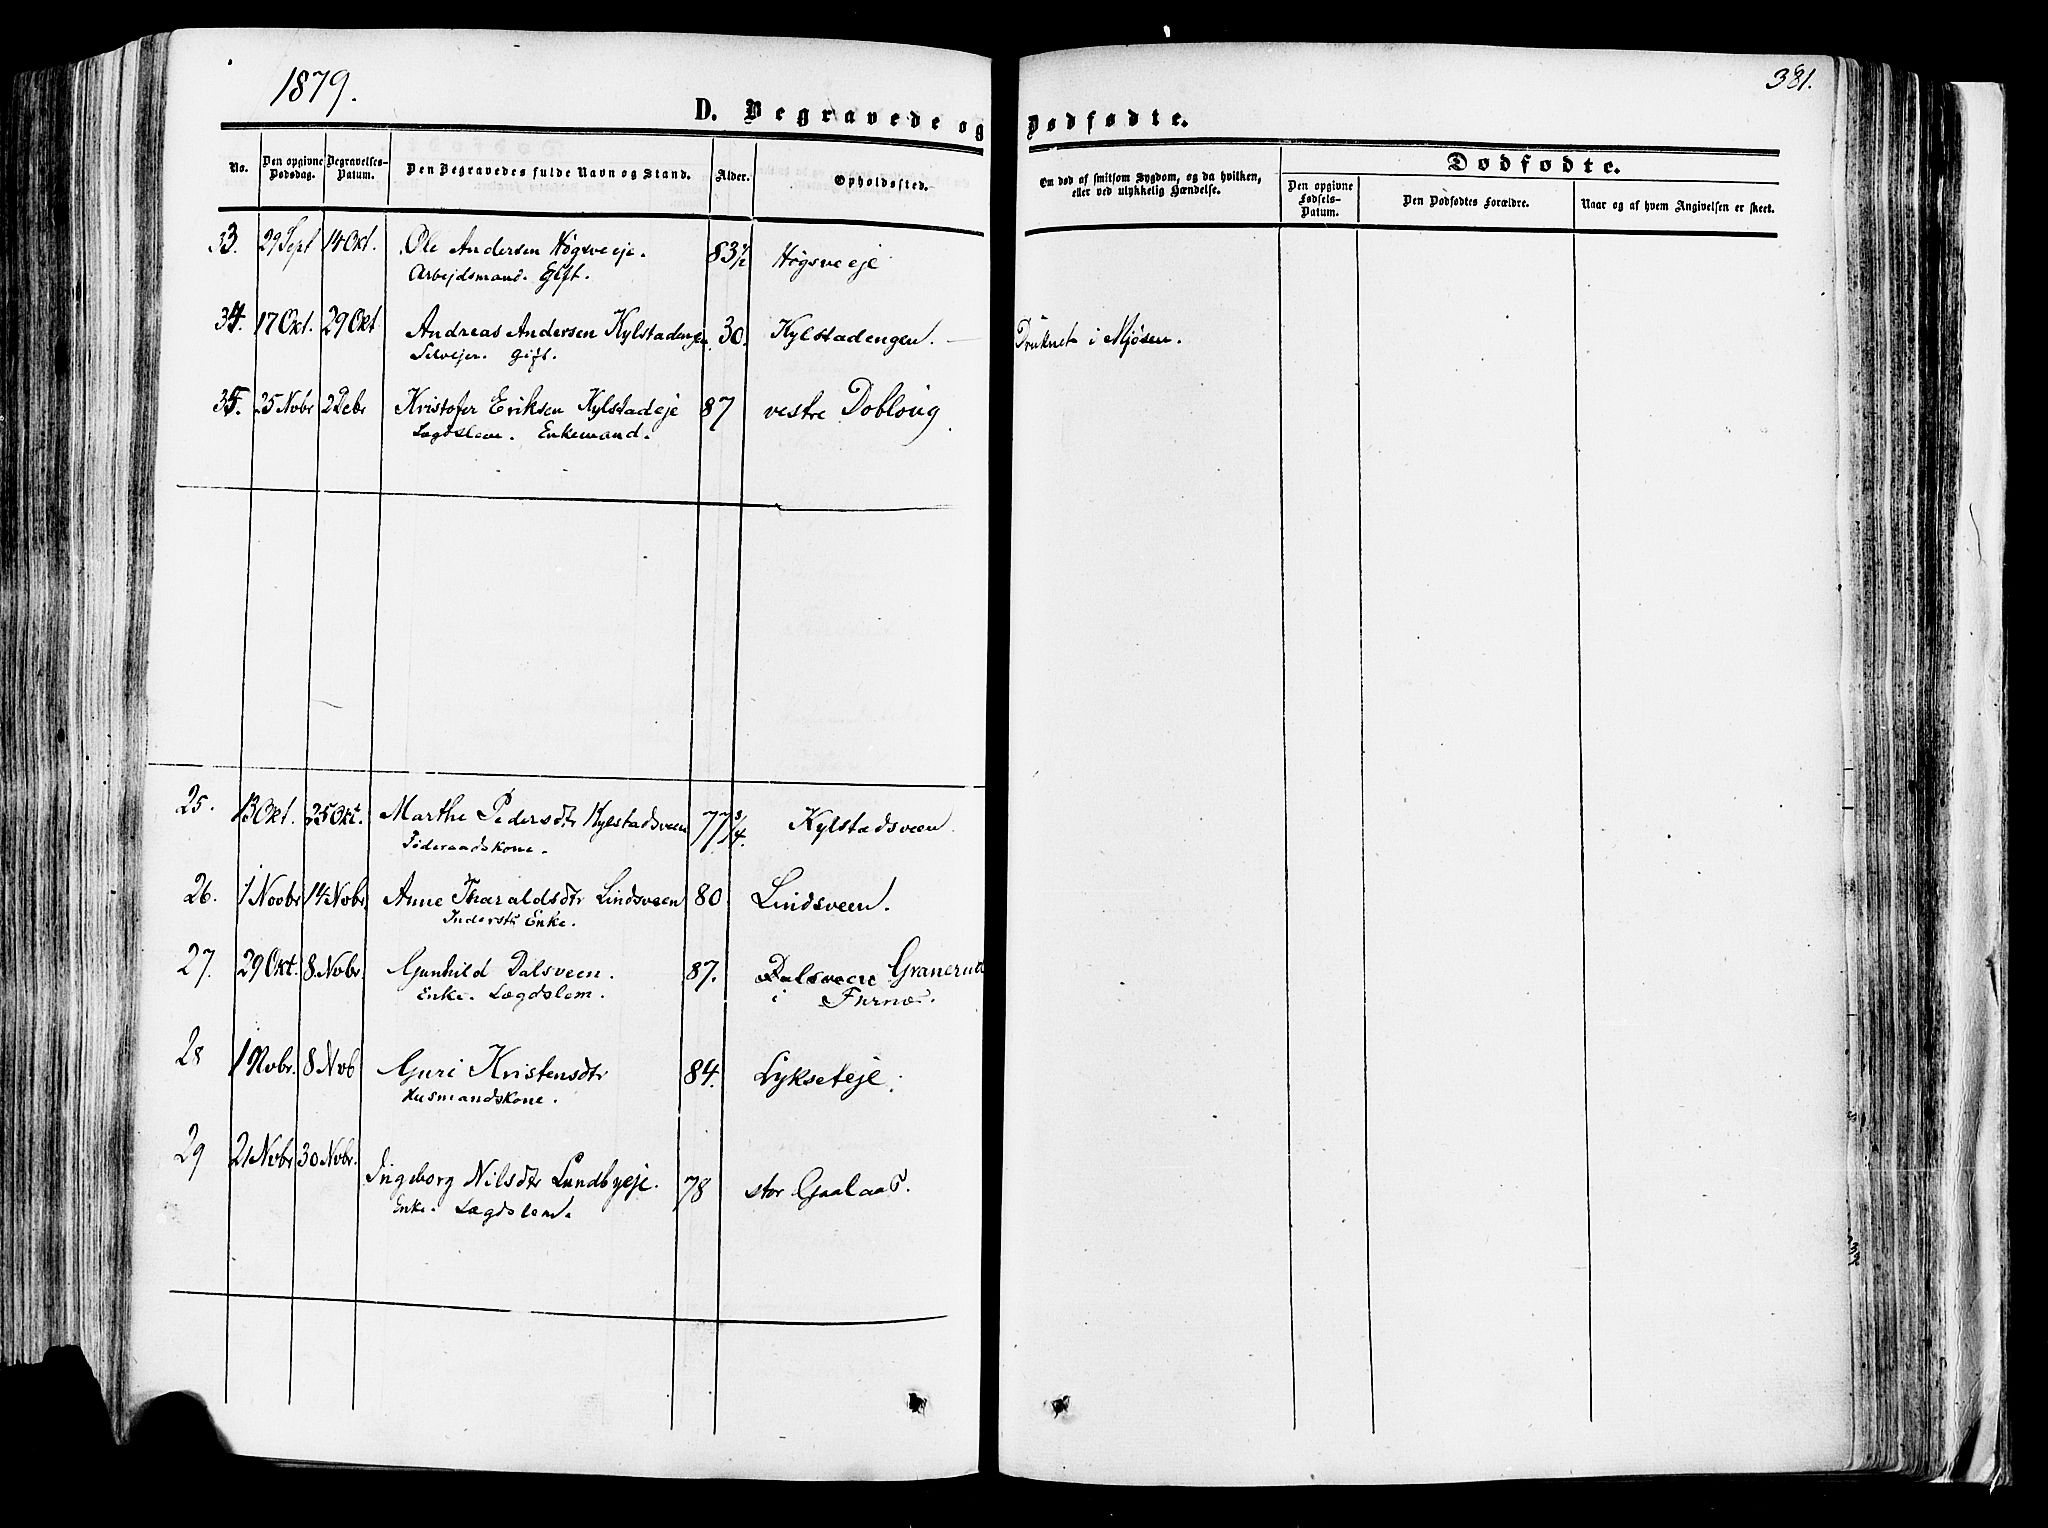 1879.
381.
D. Begravede og Dødfødte.
No.
Den opgivne Dødsdag.
Begravelses-Datum.
Den Begravedes fulde Navn og Stand.
Alder.
Opholdssted.
Om død af smitsom Sygdom, og da hvilken, eller ved ulykkelig Hændelse.
Dødfødte.
Den opgivne Fødsels-Datum.
Den Dødfødtes Forældre.
Naar og af hvem Angivelsen er skeet.
33. 29 Sept 14 Okt. Ole Andersen Høgsveeje. 83½ Høgsveeje
Arbejdsmand. Gift.
34. 17 Okt. 29 Okt Andreas Andersen Kylstadengen 30. Kylstadengen. — Druknet i Mjøsen.
Selvejer. gift.
35. 25 Nobr 2 Debr Kristofer Eriksen Kylstadeje 87 vestre Dobloug.
Lægdslem. Enkemand.
25. 13 Okt. 25 Okt. Marthe Pedersdtr Kylstadsveen 77¾. Kylstadsveen.
Føderaadskone.
26. 1 Novbr 14 Nobr. Anne Tharaldsdtr Lindsveen 80 Lindsveen.
Inderst. Enke.
27. 29 Okt. 8 Nobr. Gunhild Dalsveen. 87. Dalsveen Granerud
Enke. Lægdslem. i Furnæs.
28 1 Nobr. 8 Nob Guri Kristensdtr 84. Lykseteje.
Husmandskone.
29 21 Nobr 30 Nobr. Ingeborg Nilsdtr Lundbyeje. 78 stor Gaalaas.
Enke. Lægdslem.